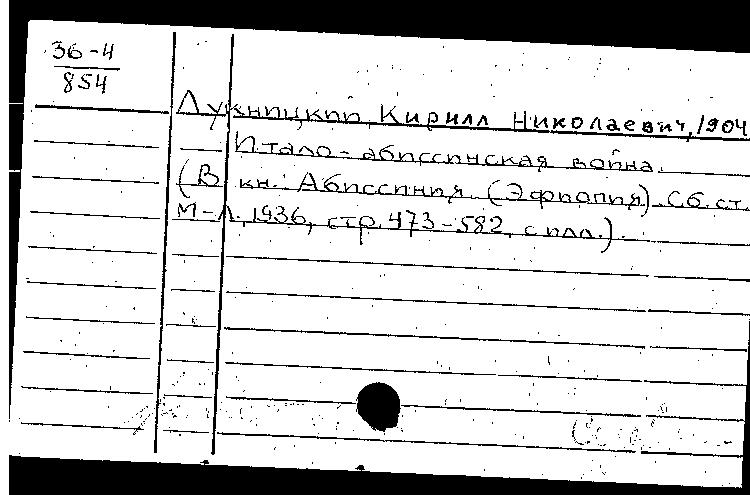 36-4
854
Лукницкий, Кирилл Николаевич, 1904
Итало-абиссинская война.
(В кн.: Абиссиния (Эфиопия). Сб. ст.
М-Л., 1936, стр. 473-582, с илл.).